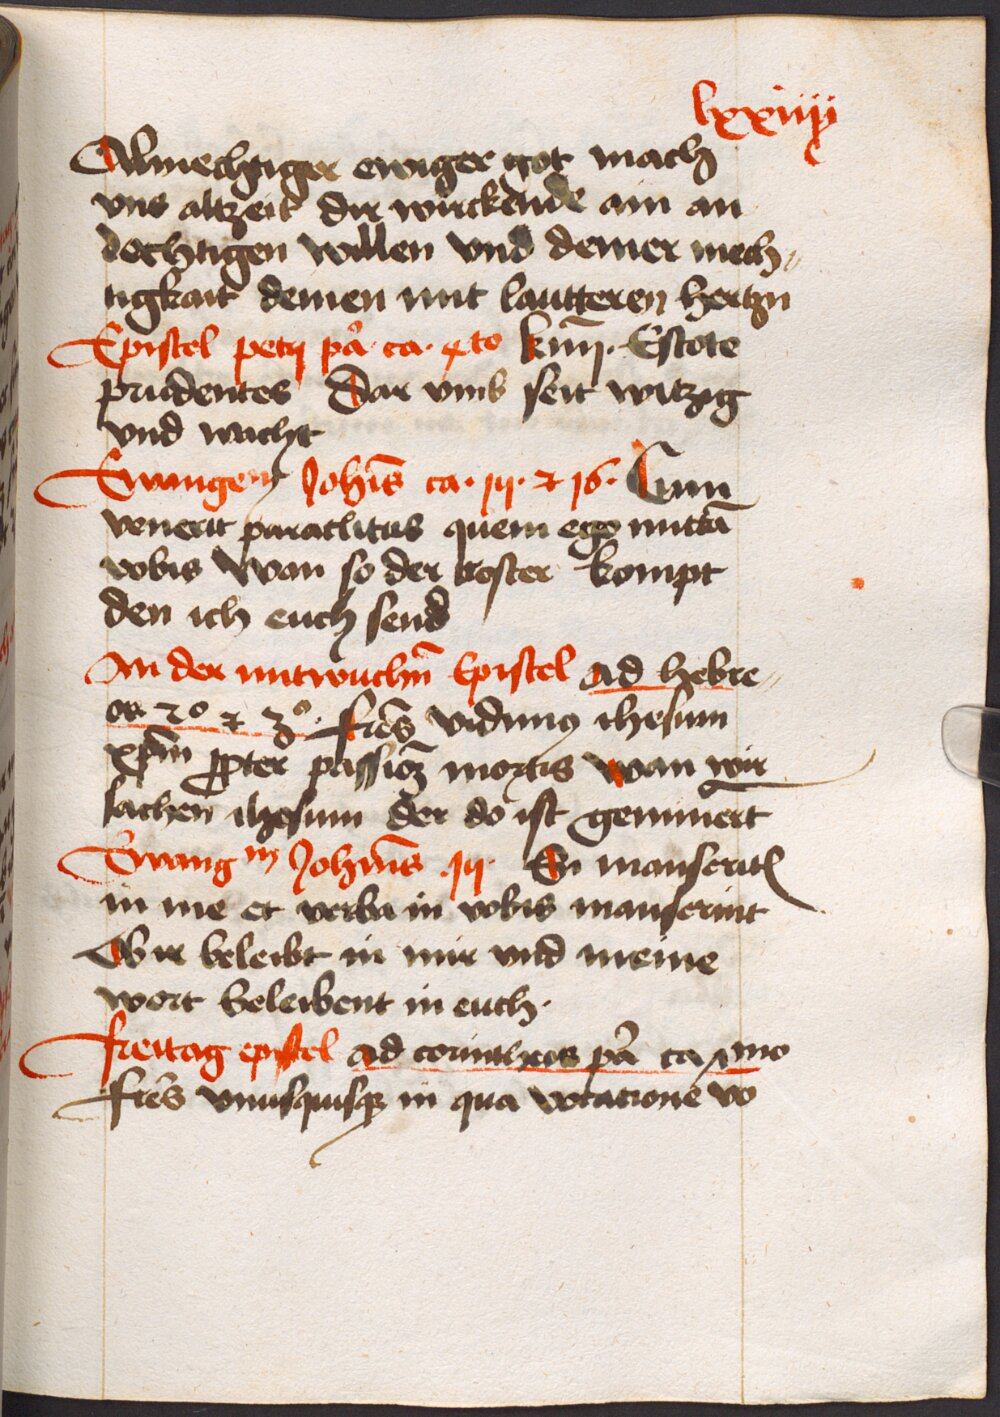 lxxiiij
Almechtiger ewiger got mach
vns altzeit dir würckende ain an
dechtigen willen vnd deiner mech
tigkait deinen mit lautteren hertzn
Epistel petrj pa ca. 4to kiiij. Estote
prudentes Dar vmb seit witzig
vnd wacht
Ewangem Johis ca. iij. 2 16. Cum
venerit paraclitus quem ego mittā
vobis Wan so der troster kompt
den ich euch send
An der mitwuchn Epistel ad hebre
os 2o 2 3o. frēs vidimus ihesum
xpm ppter passioz mortis wan wir
sachen ihesum der do ist geminert
Ewangm Johnis iij. Si manseritis
in me et verba in vobis manserint
Ob ir beleibt in mir vnd meine
wort beleibent in euch.
freitag epistel ad corintheos pa ca
frēs vnusquisqz in qua vocatione vo